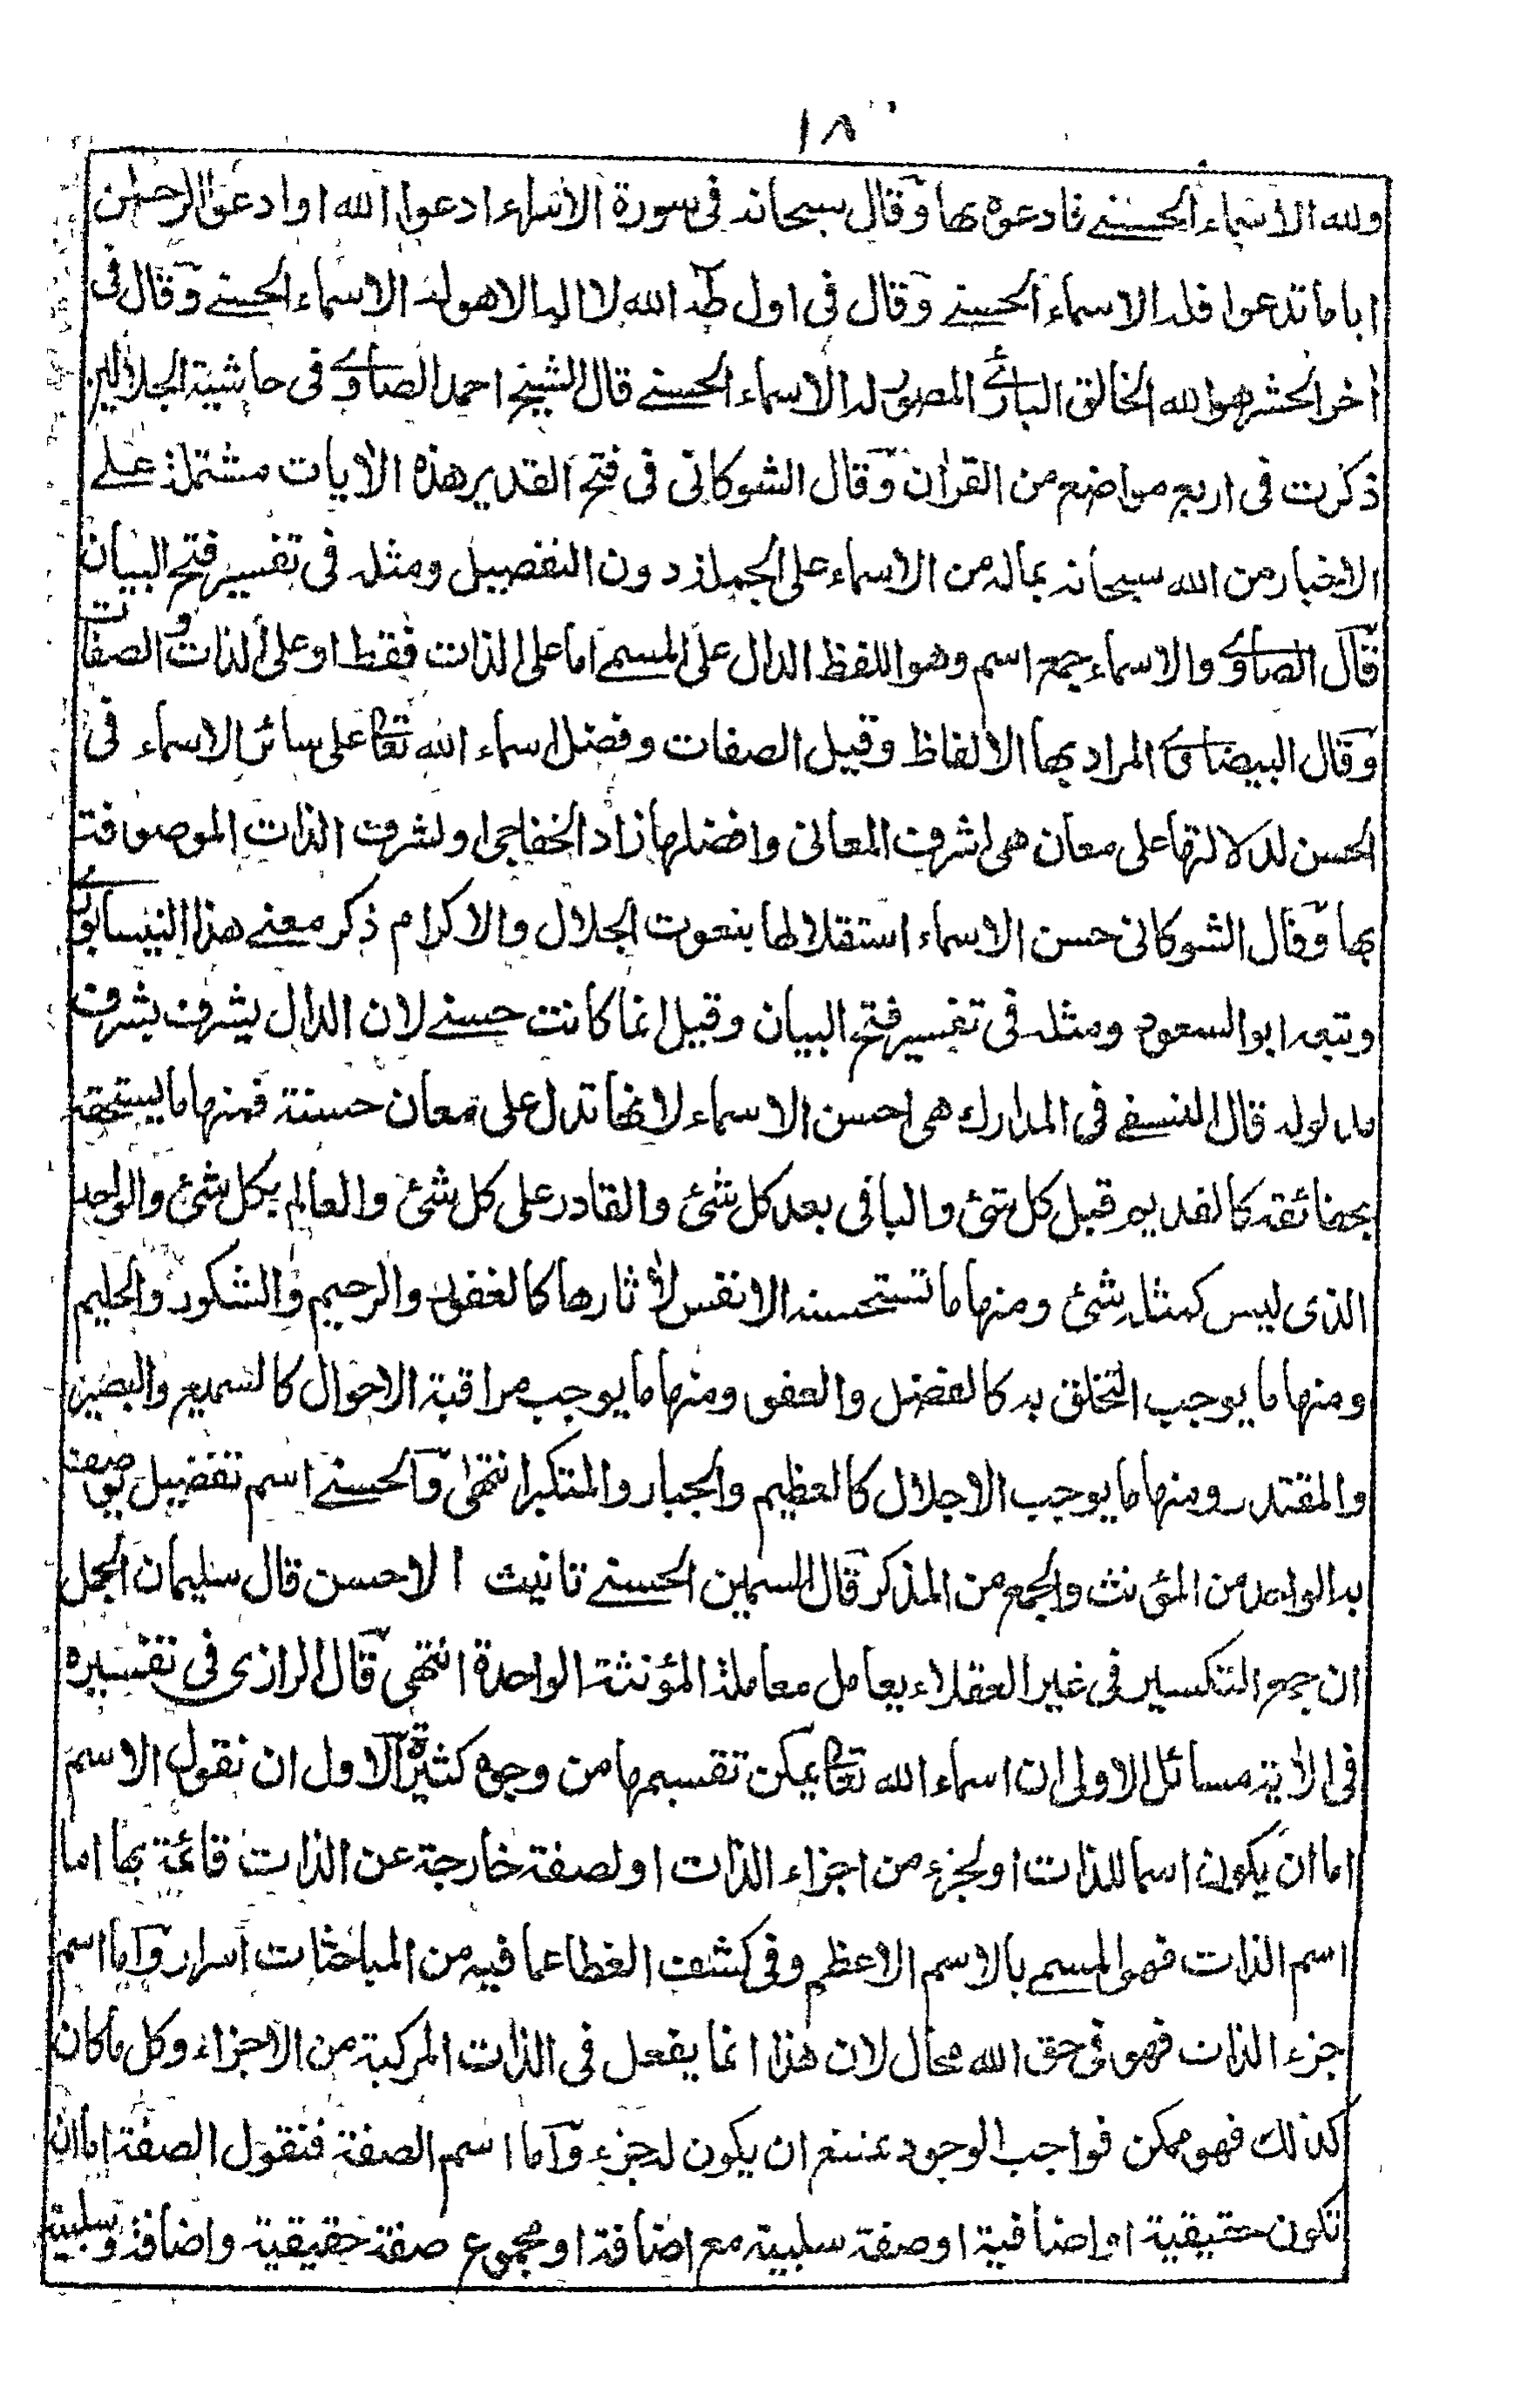 ١٨
ولله الاسماء الحسنے فادعوه بها وقال سبحانه فى سورة الاسراء ادعوا الله اوادعوا الرحمٰن
اياما تدعوا فله الاسماء الحسنے وقال فى اول طه الله لا اله الا هو له الاسماء الحسنے وقال فى
اٰخر الحشر هو الله الخالق البارئ المصور له الاسماء الحسنے قال الشيخ احمد الصاوى فى حاشية الجلالين
ذكرت فى اربع مواضع من القراٰن وقال الشوكانى فى فتح القدير هذه الاٰيات مشتملة علے
الاخبار من الله سبحانه بماله من الاسماء على الجملة دون التفصيل ومثله فى تفسير فتح البيان
قال الصاوى والاسماء جمع اسم وهو اللفظ الدال على المسمے اما على الذات فقط او على الذات والصفات
وقال البيضاوى المراد بها الالفاظ وقيل الصفات وفضل اسماء الله تعالى على سائر الاسماء فى
الحسن لدلالتها على معان هى اشرف المعانى وافضلها زاد الخفاجى اولشرف الذات الموصوفة
بها وقال الشوكانى حسن الاسماء استقلالها بنعوت الجلال والاكرام ذكر معنے هذا النيسابورى
وتبعه ابو السعود ومثله فى تفسير فتح البيان وقيل انما كانت حسنے لان الدال يشرف بشرف
مدلوله قال النسفے فى المدارك هى احسن الاسماء لانها تدل على معان حسنة فمنها ما يستحقه
بحقائقه كالقديم قبل كل شئ والباقى بعد كل شئ والقادر على كل شئ والعالم بكل شئ والواحد
الذى ليس كمثله شئ ومنها ما تستحسنه الانفس لاٰثارها كالغفور والرحيم والشكور والحليم
ومنها ما يوجب التخلق به كالفضل والعفو ومنها ما يوجب مراقبة الاحوال كالسميع والبصير
والمقتدر ومنها ما يوجب الاجلال كالعظيم والجبار والمتكبر انتهى والحسنے اسم تفضيل يوصف
به الواحد من المؤنث والجمع من المذكر قال السمين الحسنے تانيث الاحسن قال سليمان الجمل
ان جمع التكسير فى غير العقلاء يعامل معاملة المؤنثة الواحدة انتهى قال الرازى فى تفسيره
فى الاٰية مسائل الاولى ان اسماء الله تعالى يمكن تقسيمها من وجوه كثيرة الاول ان نقول الاسم
اما ان يكون اسما للذات او لجزء من اجزاء الذات او لصفة خارجة عن الذات قائمة بها اما
اسم الذات فهو المسمے بالاسم الاعظم وفى كشف الغطا عما فيه من المباحثات اسرار واما اسم
جزء الذات فهو فى حق الله محال لان هذا انما يفعل فى الذات المركبة من الاجزاء وكل ما كان
كذلك فهو ممكن فواجب الوجود يمتنع ان يكون له جزء واما اسم الصفة فنقول الصفة اما ان
تكون حقيقية او اضافية او صفة سلبية مع اضافة او مجموع صفة حقيقية واضافة وسلبية